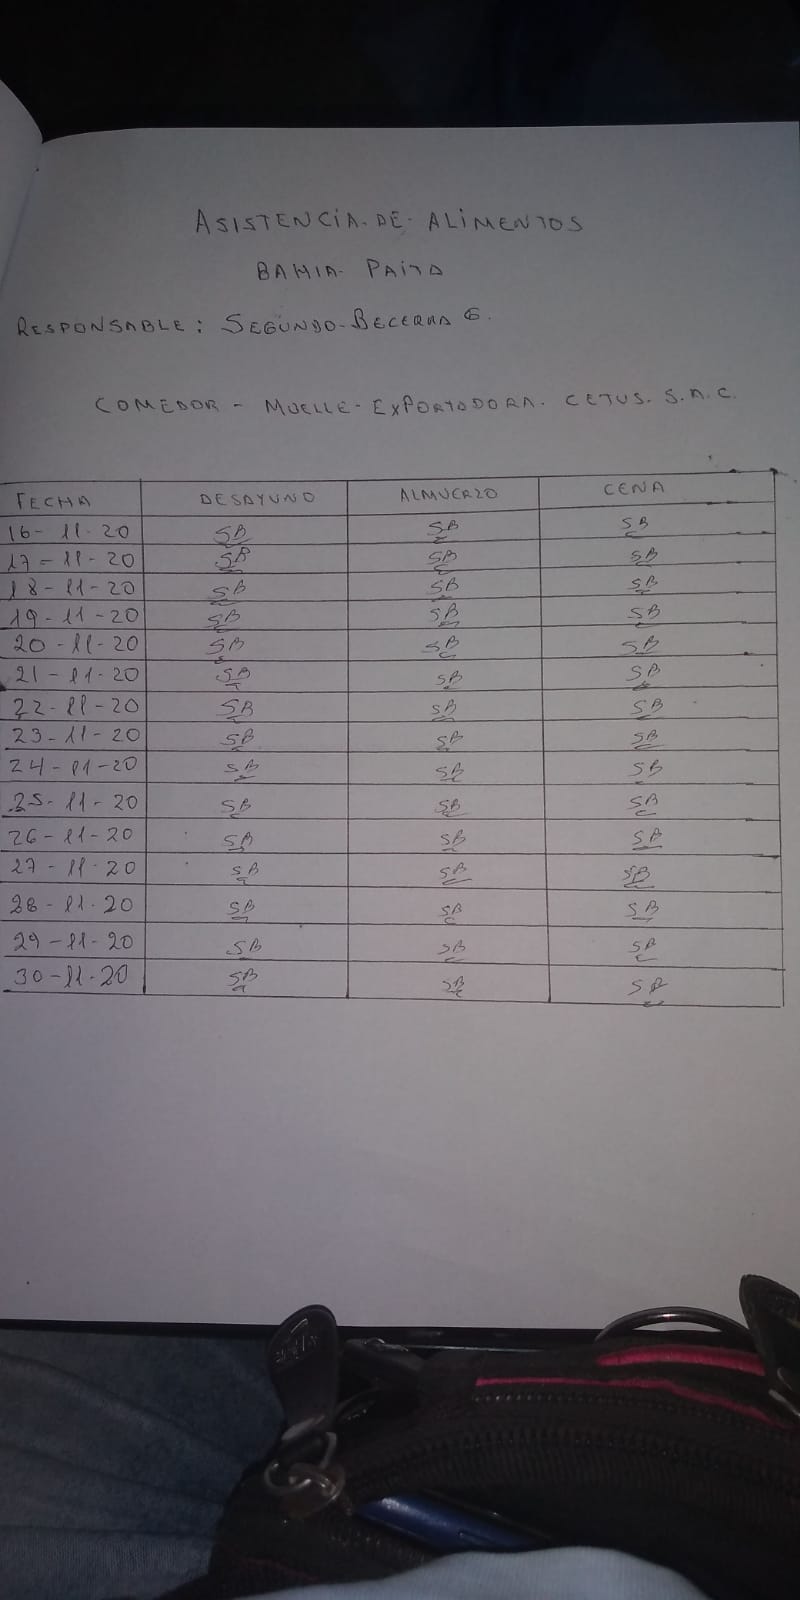 ASISTENCIA. DE. ALIMENTOS
BAHIA. PAITA
RESPONSABLE: SEGUNDO. BECERRA G.
COMEDOR - MUELLE - EXPORTADORA. CETUS. S.A.C.
FECHA DESAYUNO ALMUERZO CENA
16-11-20 SB SB SB
17-11-20 SB SB SB
18-11-20 SB SB SB
19-11-20 SB SB SB
20-11-20 SB SB SB
21-11-20 SB SB SB
22-11-20 SB SB SB
23-11-20 SB SB SB
24-11-20 SB SB SB
25-11-20 SB SB SB
26-11-20 SB SB SB
27-11-20 SB SB SB
28-11-20 SB SB SB
29-11-20 SB SB SB
30-11-20 SB SB SB